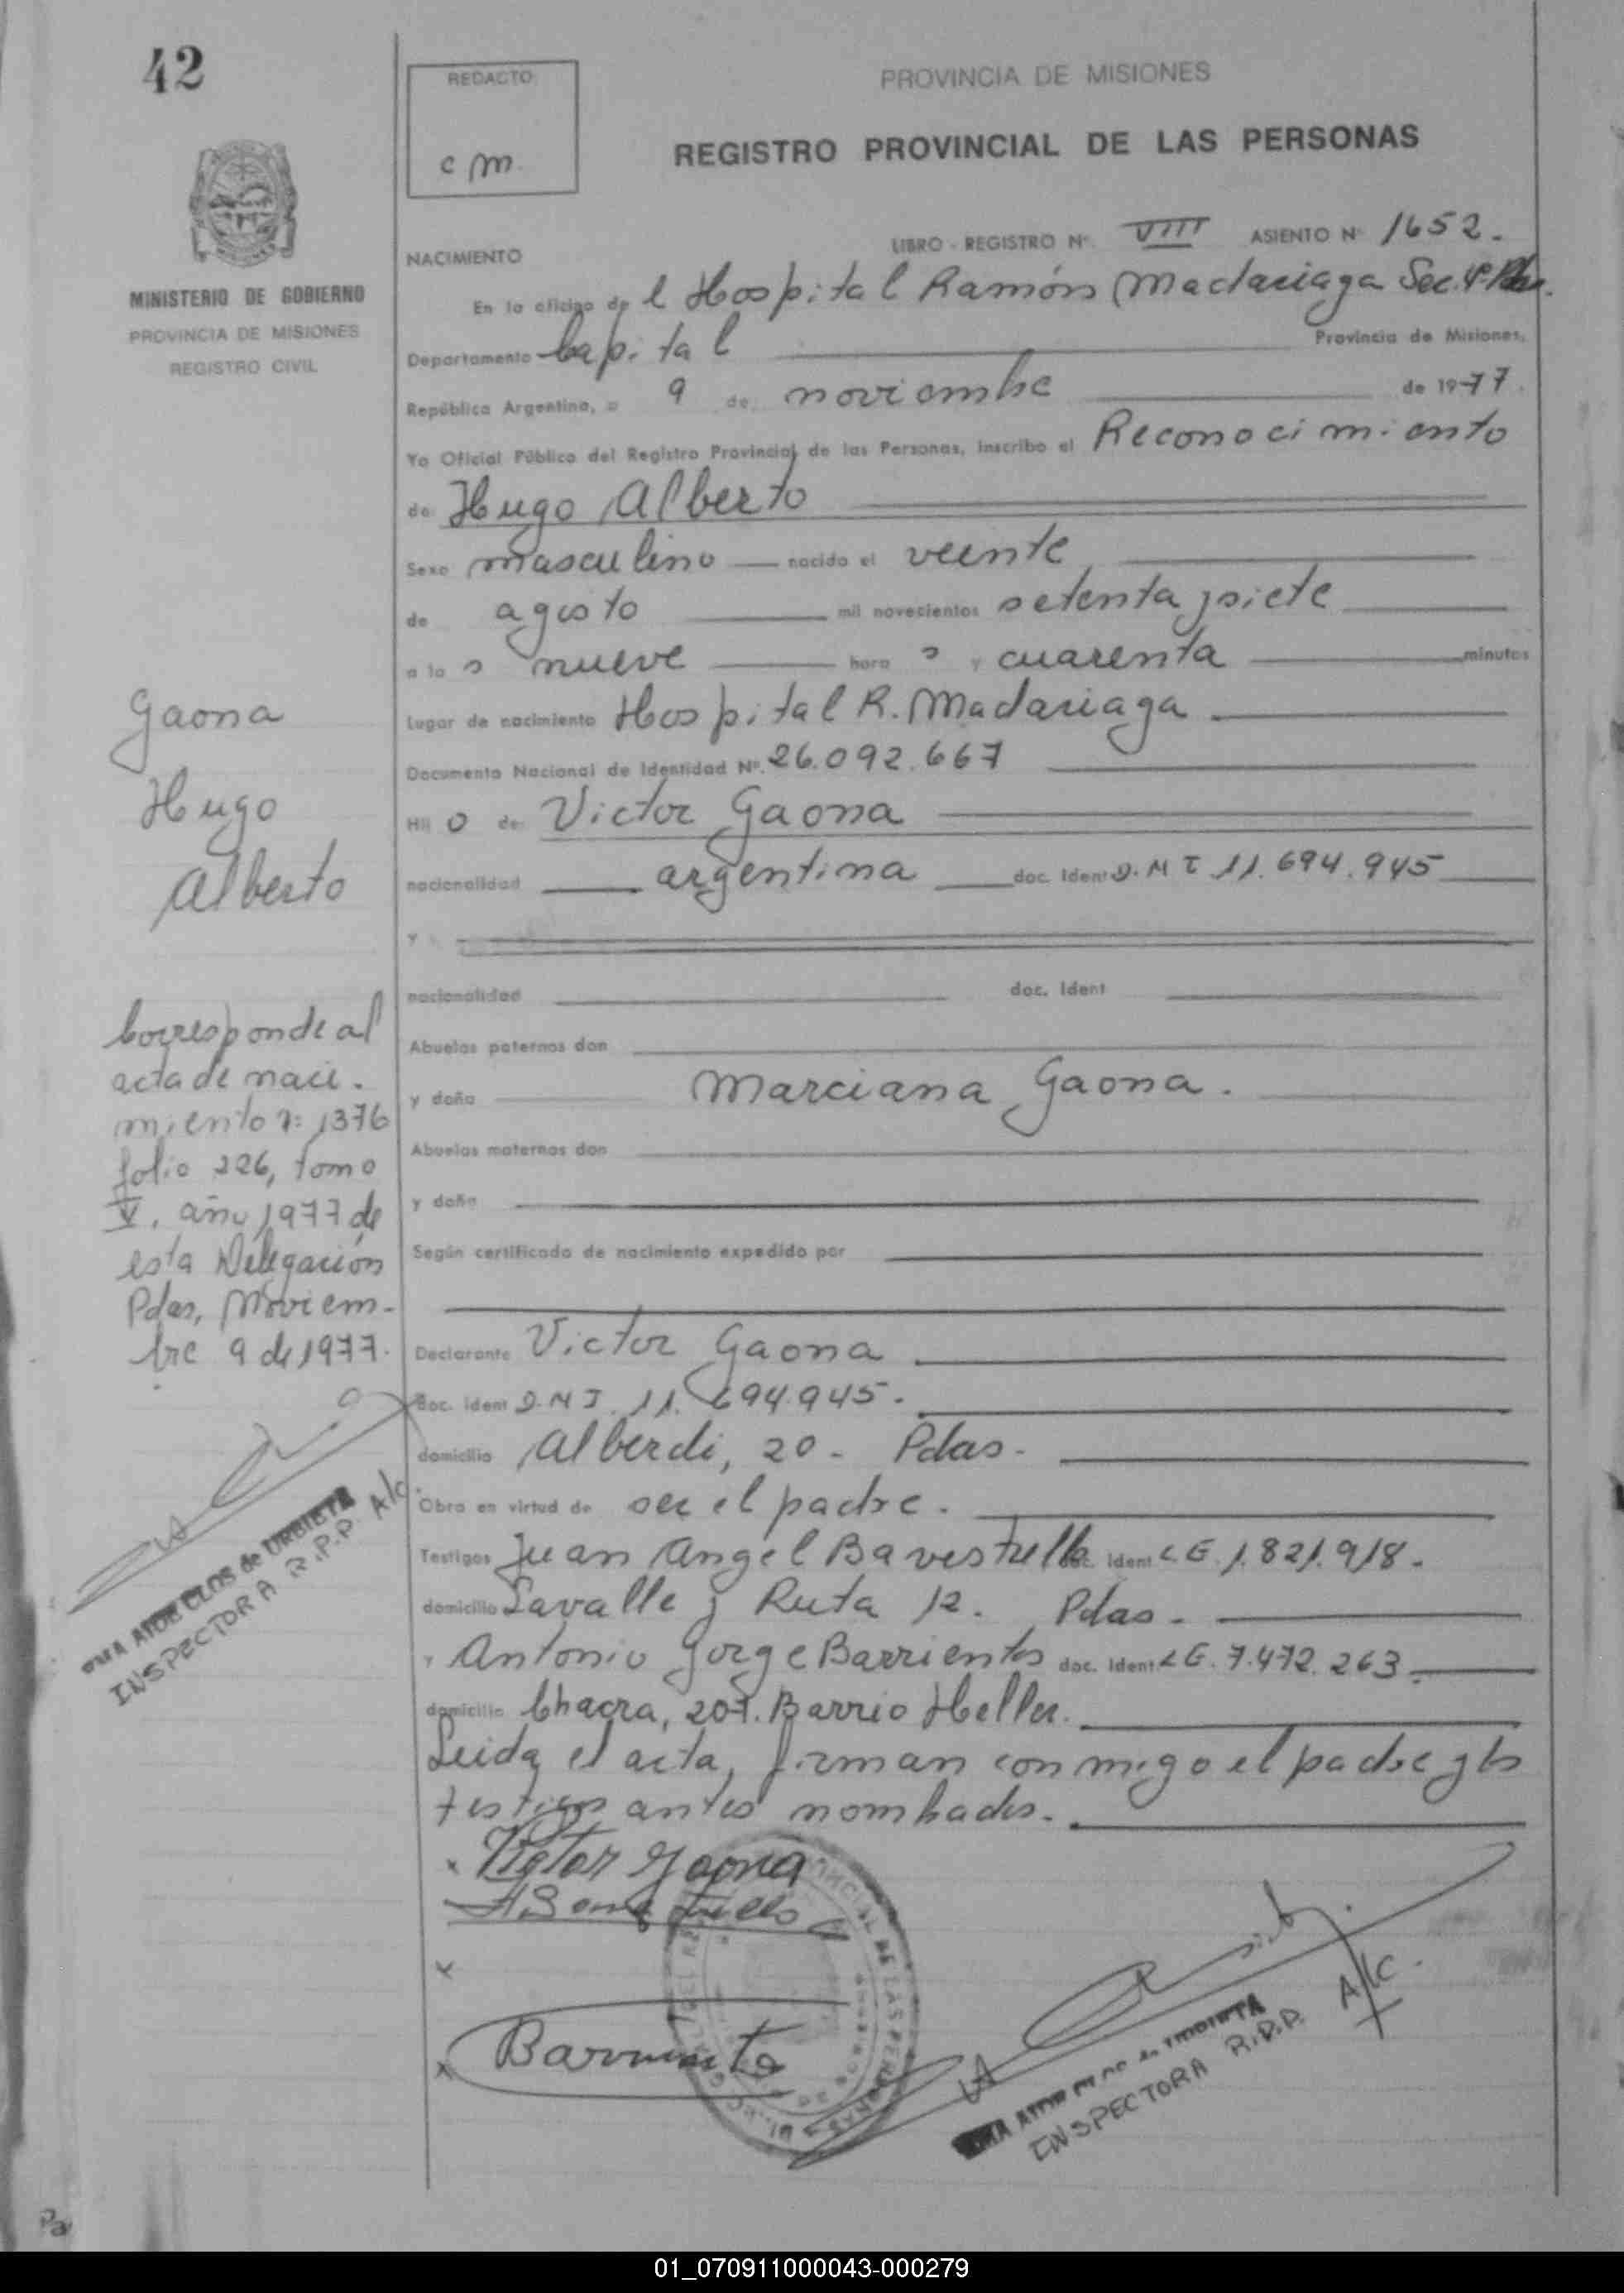 42
REDACTO
c m.
PROVINCIA DE MISIONES
REGISTRO PROVINCIAL DE LAS PERSONAS
MINISTERIO DE GOBIERNO
PROVINCIA DE MISIONES
REGISTRO CIVIL
LIBRO - REGISTRO Nº. VIII ASIENTO Nº 1652.
NACIMIENTO
En la oficina de l Hospital Ramón Madariaga Sec. 4ª
Departamento Capital Provincia de Misiones,
República Argentina, a 9 de noviembre de 1977.
Yo Oficial Público del Registro Provincial de las Personas, inscribo el Reconocimiento
de Hugo Alberto
Sexo masculino nacido el veinte
de agosto mil novecientos setenta y siete
a la s nueve hora s y cuarenta minutos
Lugar de nacimiento Hospital R. Madariaga
Documento Nacional de Identidad Nº. 26.092.667
Hij o de Victor Gaona
nacionalidad argentina doc. Ident D.N.I. 11.694.945
y
nacionalidad doc. Ident
Abuelos paternos don
y doña Marciana Gaona.
Abuelos maternos don
y doña
Según certificado de nacimiento expedido por
Declarante Victor Gaona
doc. ident D.N.I. 11.694.945.
domicilio Alberdi, 20 - Pdas.
Obra en virtud de ser el padre.
Testigos Juan Angel Bavestrello doc. Ident L E. 1.821.918.
domicilio Lavalle y Ruta 12. Pdas.
y Antonio Jorge Barrientos doc. Ident L E. 7.472.263.
domicilio Chacra, 207. Barrio Heller.
Leida el acta, firman conmigo el padre y los
testigos antes nombrados.
Gaona
Hugo
Alberto
Corresponde al
acta de naci-
miento nº 1376
folio 226, tomo
V, año 1977 de
esta Delegación
Pdas, Noviem-
bre 9 de 1977.
CLOS de URBIETA
INSPECTORA R.P.P. A/C.
x Victor Gaona
x
x Barrientos
DE LAS PERSONAS
INSPECTORA R.P.P. A/C.
01_070911000043-000279